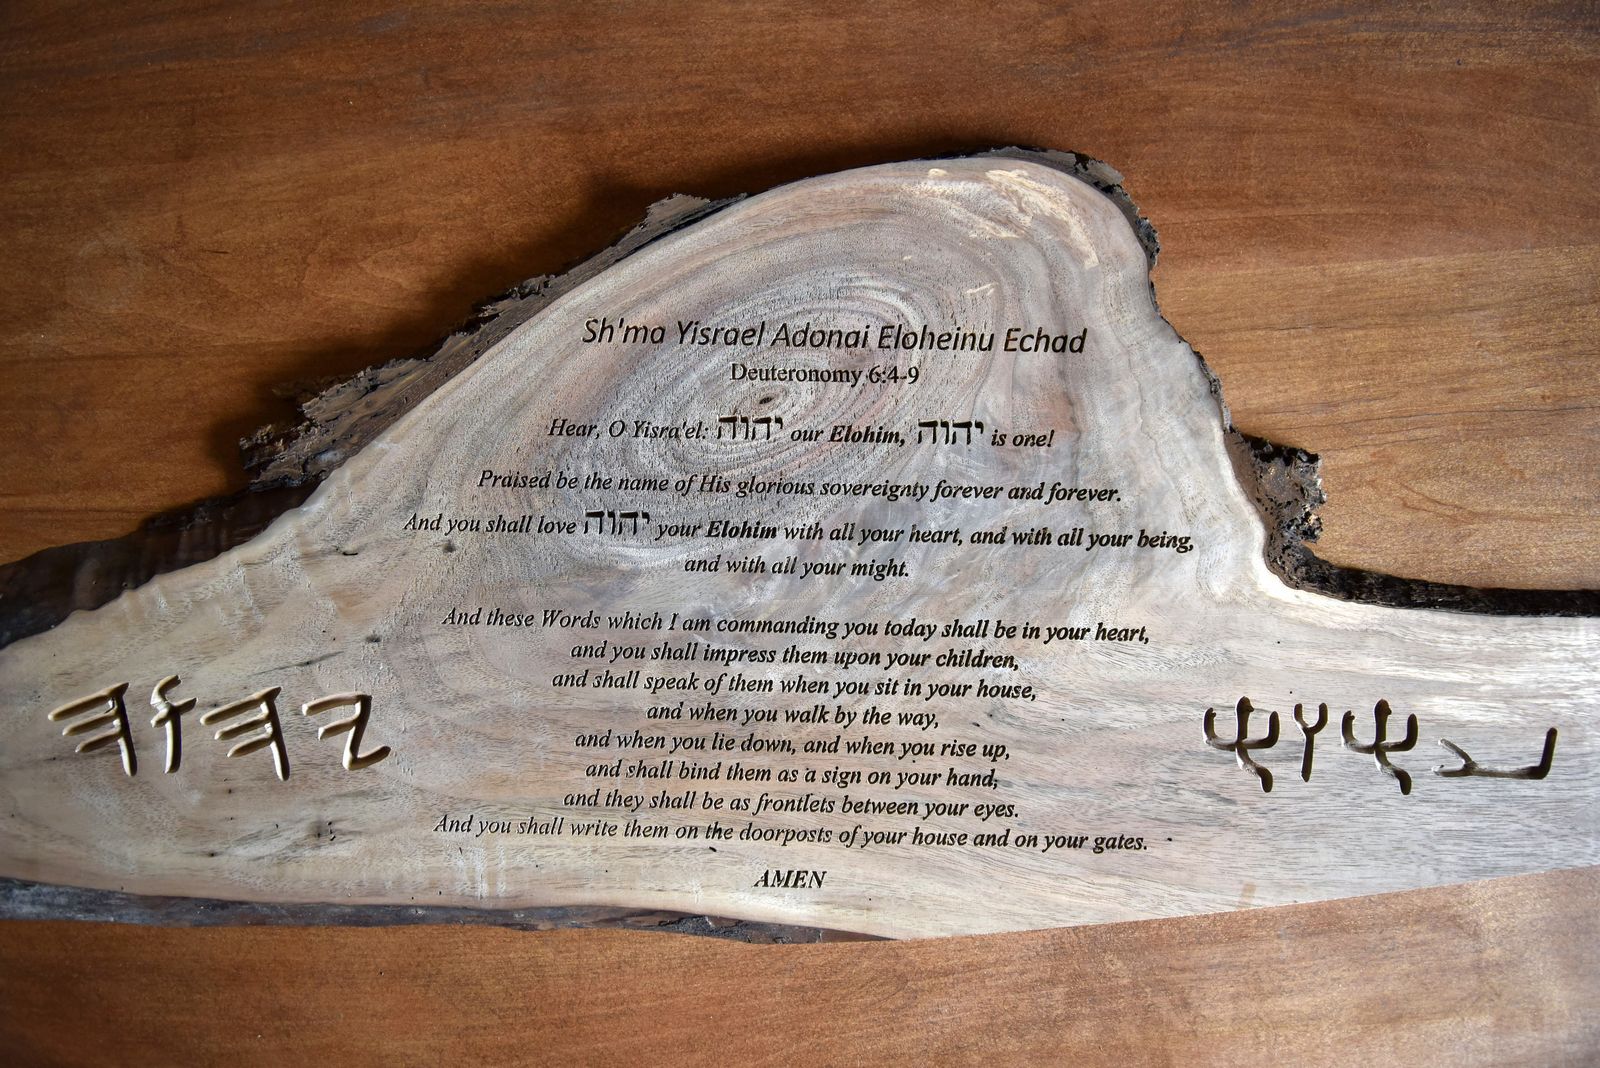 Sh'ma Yisrael Adonai Eloheinu Echad
Deuteronomy 6:4-9
Hear, O Yisra'el: יהוה our Elohim, יהוה is one!
Praised be the name of His glorious sovereignty forever and forever.
And you shall love יהוה your Elohim with all your heart, and with all your being,
and with all your might.
And these Words which I am commanding you today shall be in your heart,
and you shall impress them upon your children,
and shall speak of them when you sit in your house,
and when you walk by the way,
and when you lie down, and when you rise up,
and shall bind them as a sign on your hand,
and they shall be as frontlets between your eyes.
And you shall write them on the doorposts of your house and on your gates.
AMEN
𐤉𐤄𐤅𐤄
𐤉𐤄𐤅𐤄